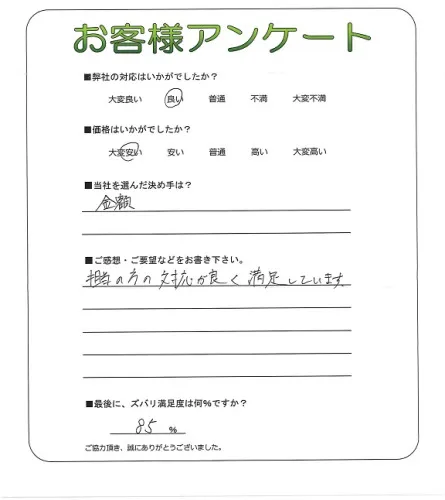 お客様アンケート
■弊社の対応はいかがでしたか？
大変良い 良い 普通 不満 大変不満
■価格はいかがでしたか？
大変安い 安い 普通 高い 大変高い
■当社を選んだ決め手は？
金額
■ご感想・ご要望などをお書き下さい。
担当の方の対応が良く満足しています
■最後に、ズバリ満足度は何％ですか？
85 ％
ご協力頂き、誠にありがとうございました。